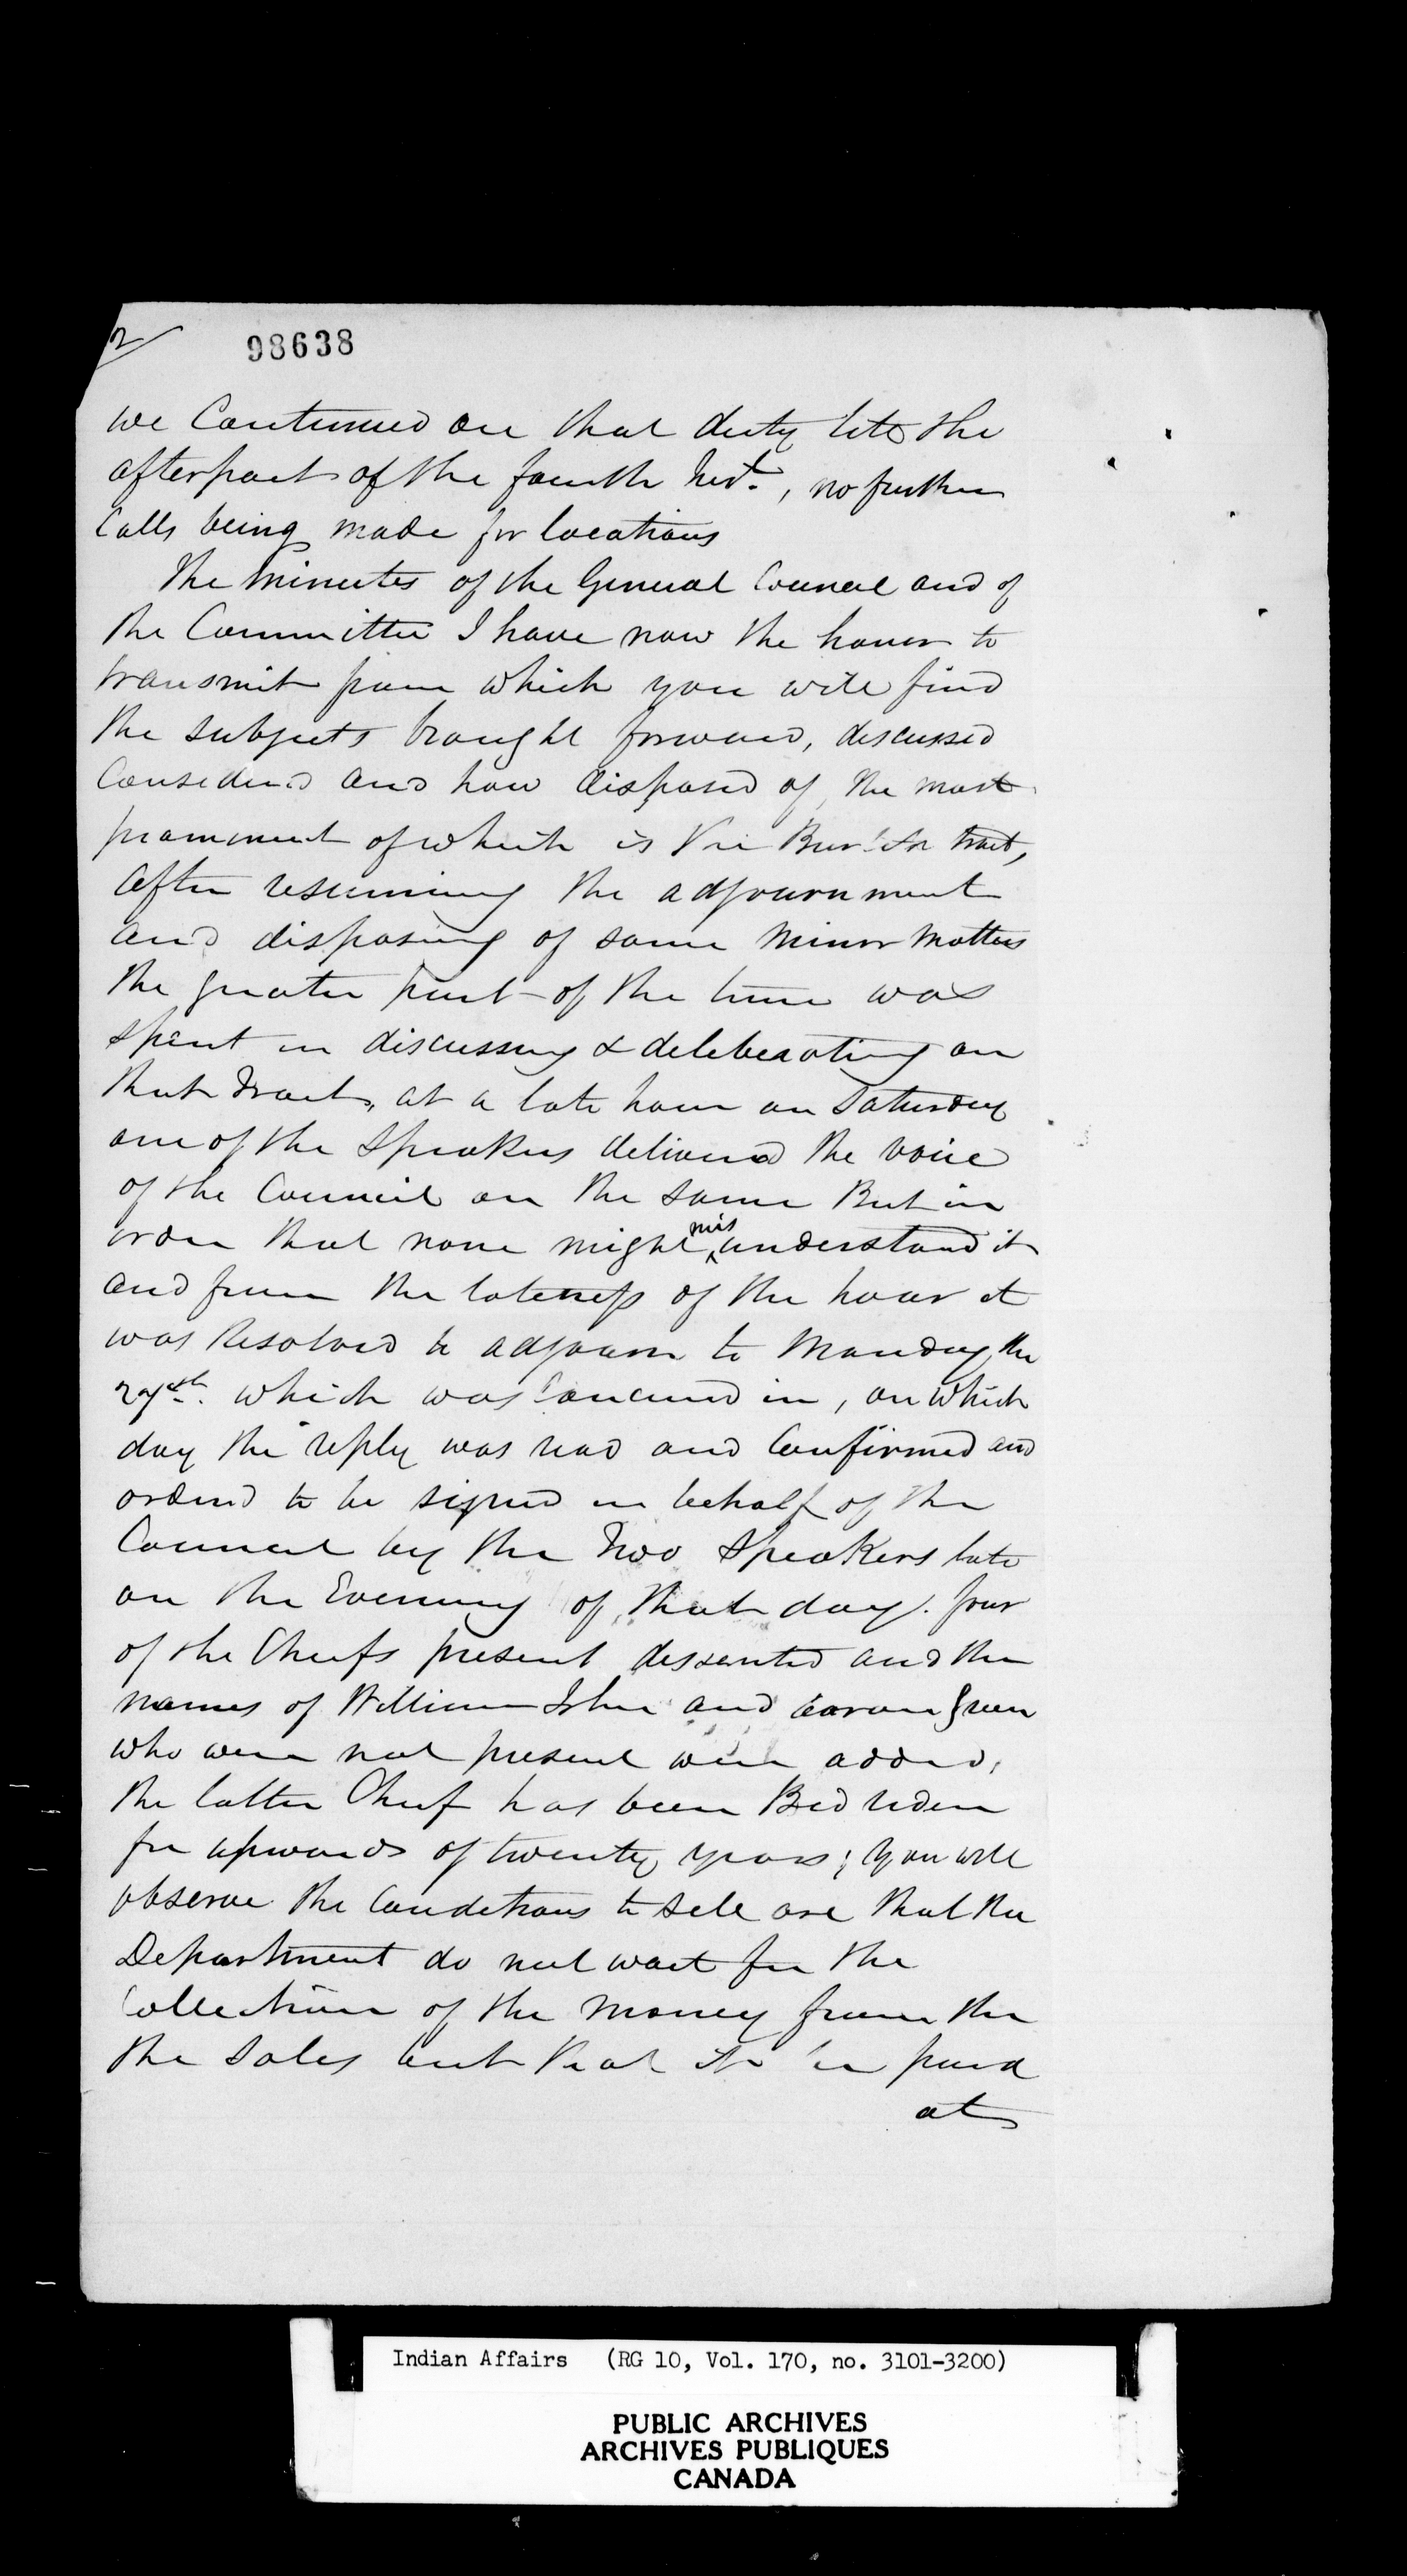 2
98638
we Continued on that duty till the
afterpart of the fourth Inst., no further
Calls being made for locations
The Minutes of the General Council and of
the Committee I have now the honor to
transmit from which you will find
the subjects brought forward, discussed
Considered and how disposed of, the most
prominent of which is the Bur tract,
after resuming the adjournment
and disposing of some Minor Matters
the greater part of the time was
spent in discussing & deliberating on
that tract, at a late hour on Saturday
one of the Speakers delivered the voice
of the Council on the same But in
order that none might misunderstand it
and from the lateness of the hour it
was Resolved to adjourn to Monday the
27th. which was Concurred in, on which
day the reply was read and Confirmed and
ordered to be signed in behalf of the
Council by the Two Speakers late
on the Evening of that day. four
of the Chiefs present dessented and the
names of William John and Aaron Green
who were not present were added,
the latter Chief has been Bed riden
for upwards of twenty years; you will
observe the Conditions to sell are that the
Department do not wait for the
Collection of the Money from the
the Sales but that it be paid
at
Indian Affairs (RG 10, Vol. 170, no. 3101-3200)
PUBLIC ARCHIVES
ARCHIVES PUBLIQUES
CANADA